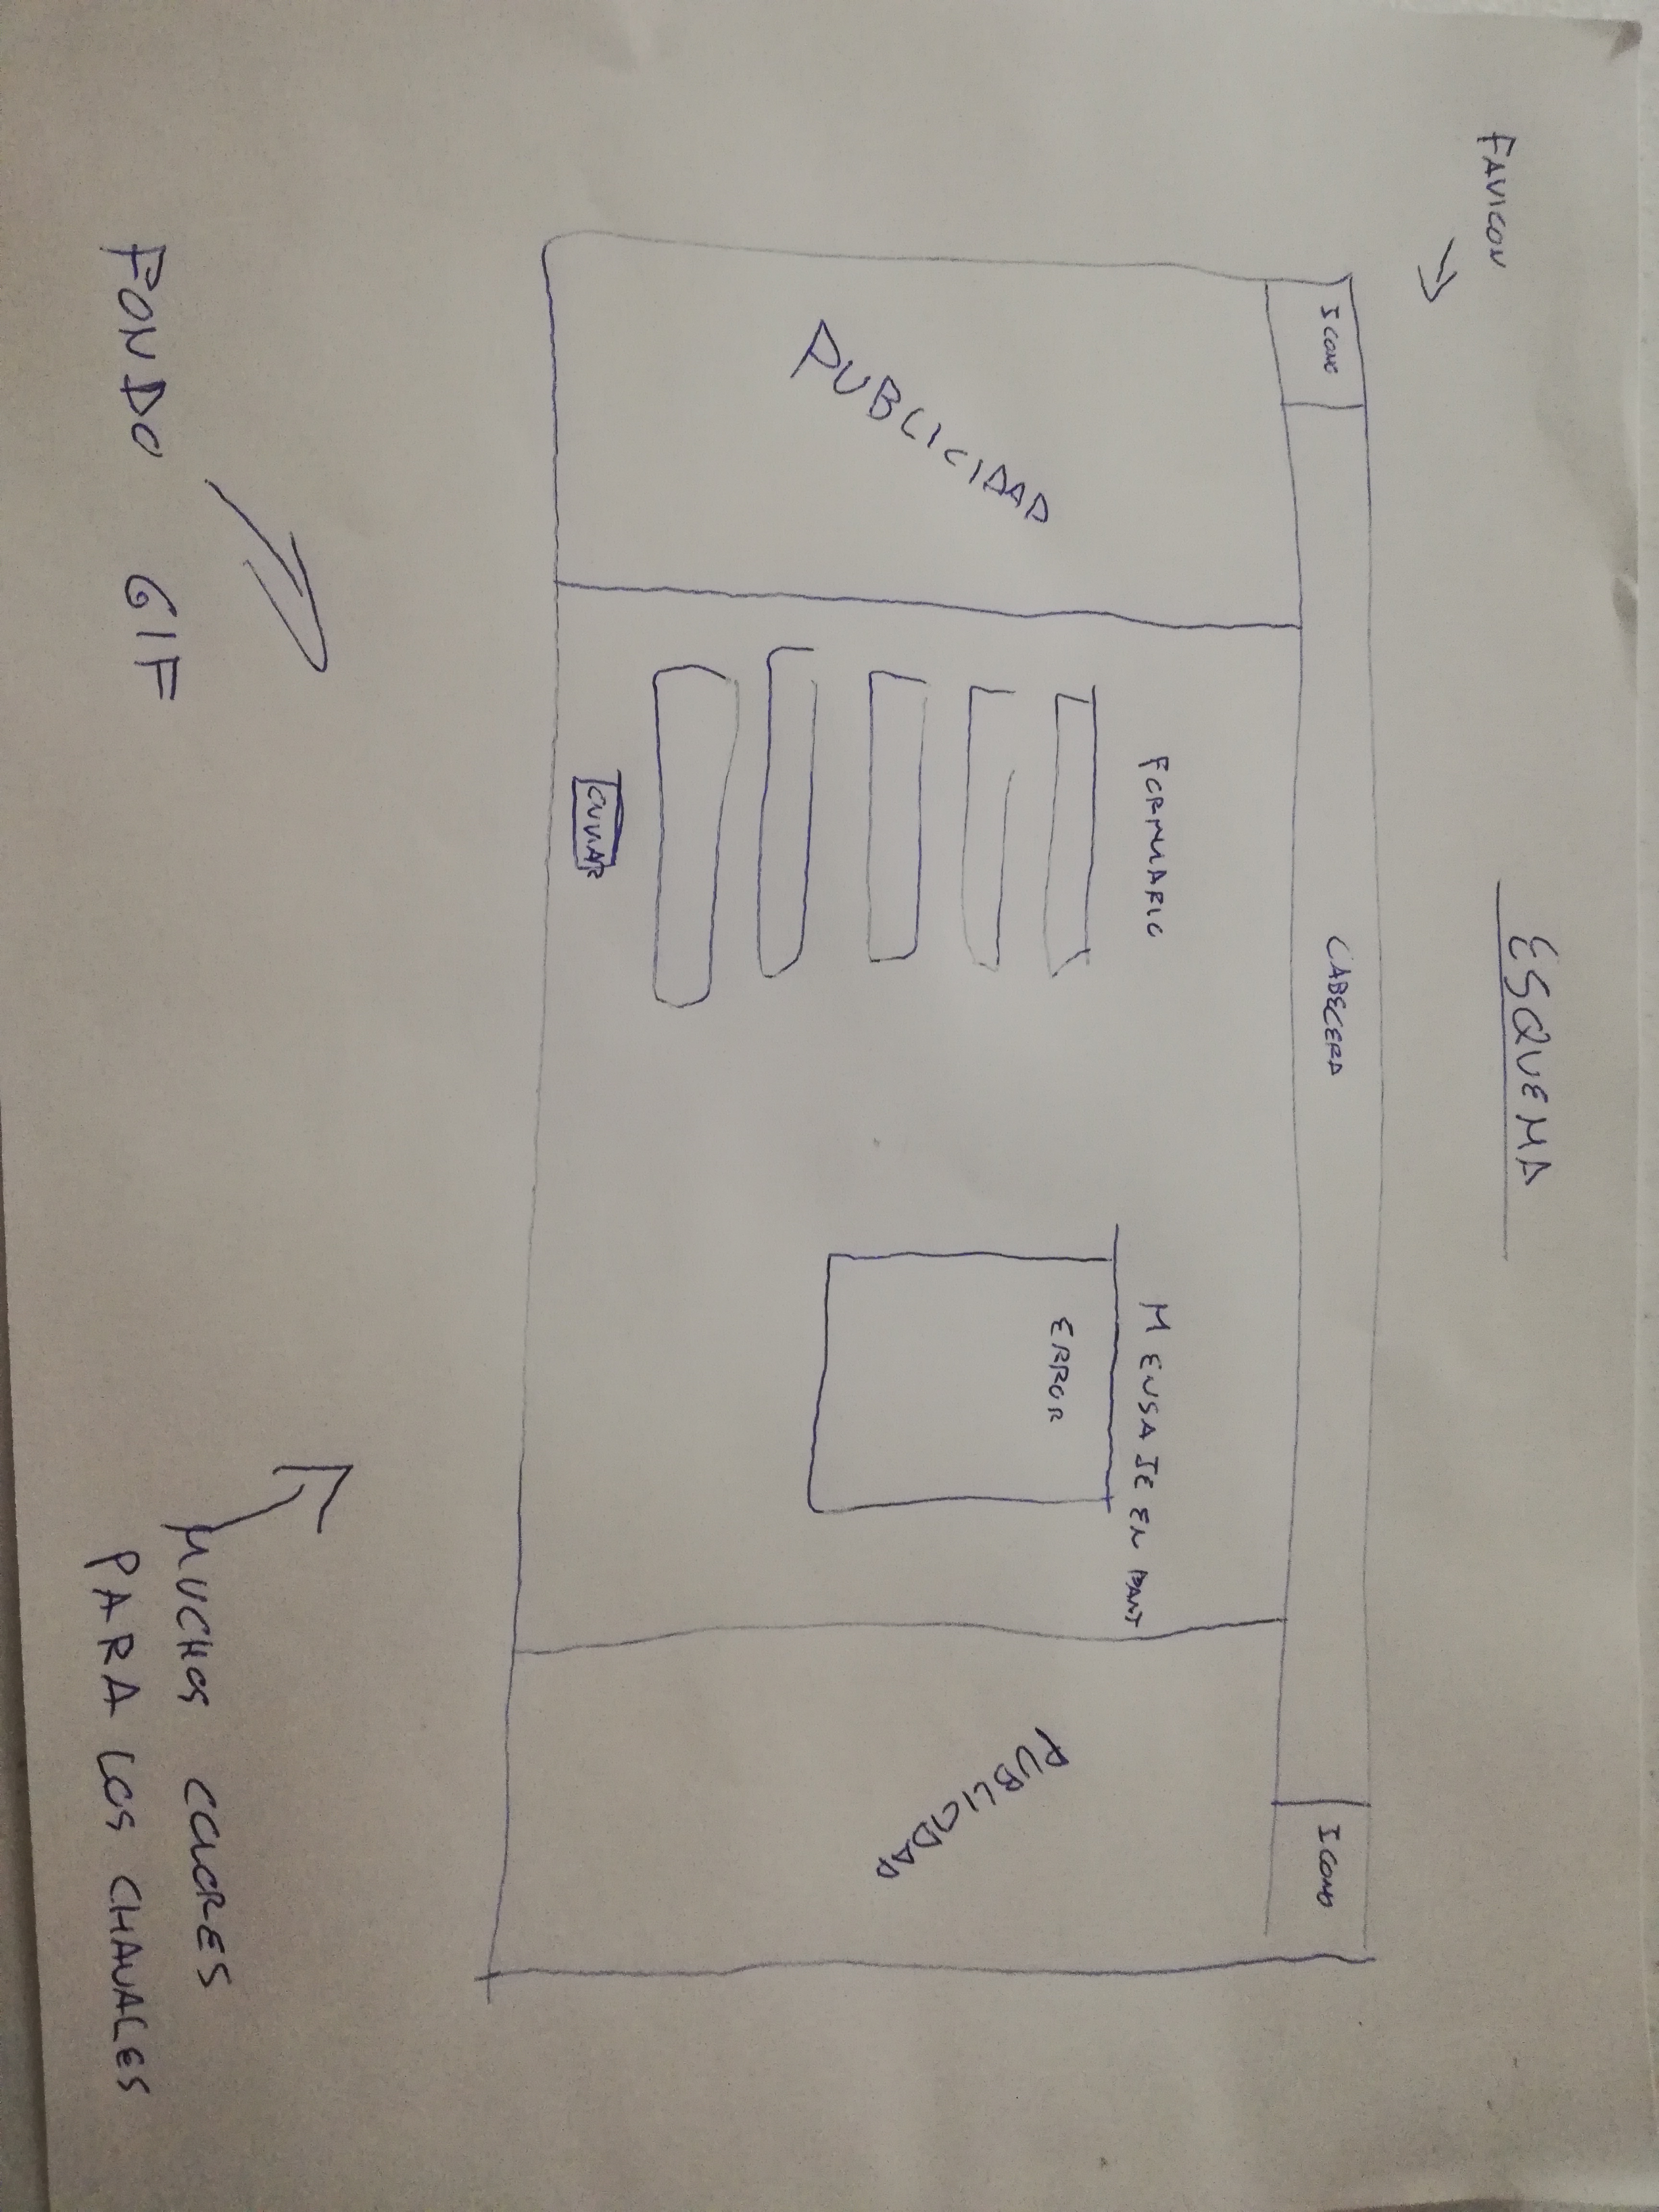 ESQUEMA
FAVICON
ICONO
CABECERA
ICONO
PUBLICIDAD
FORMULARIO
ENVIAR
MENSAJE EN PANT
ERROR
PUBLICIDAD
FONDO GIF
MUCHOS COLORES
PARA LOS CHAVALES